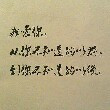 我爱你.
从你不知道的时候.
到你不知道的时候.